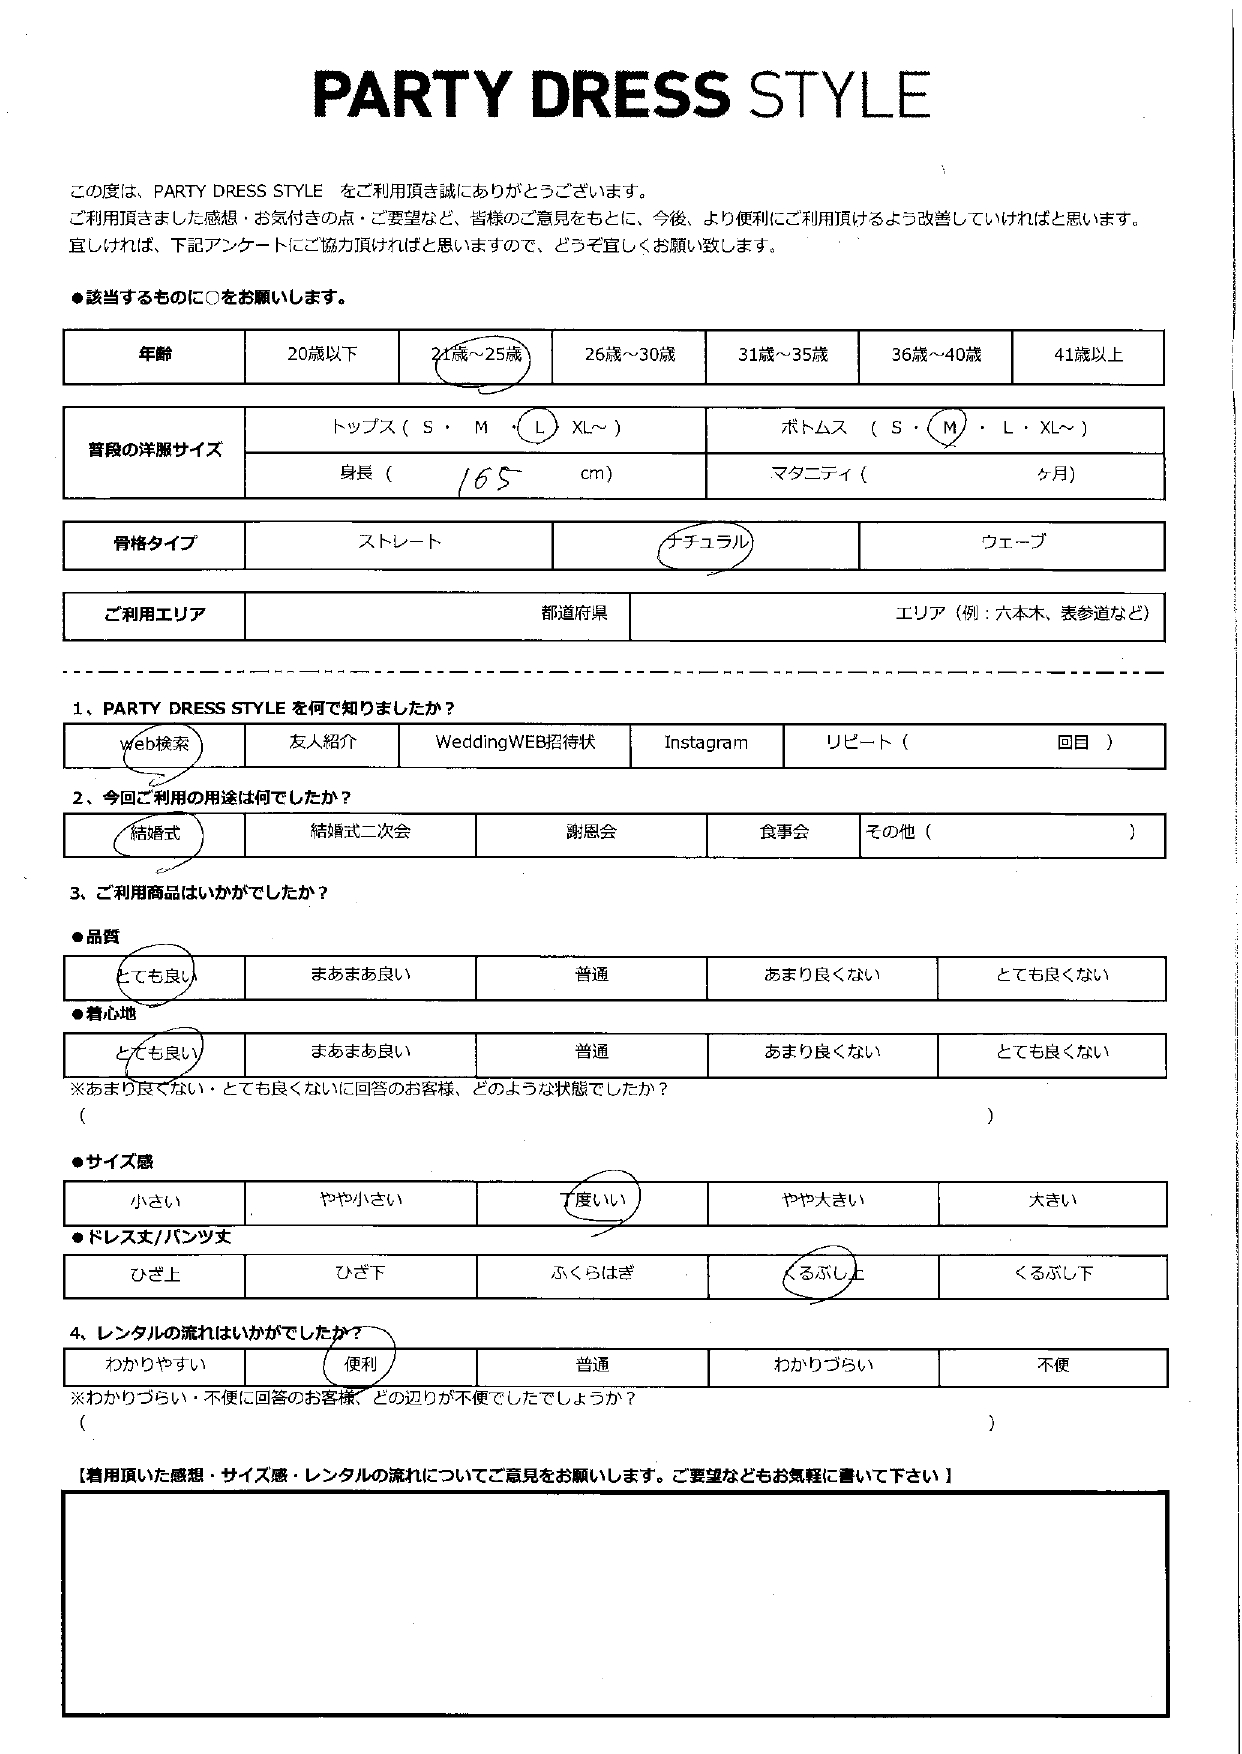 PARTY DRESS STYLE
この度は、PARTY DRESS STYLE をご利用頂き誠にありがとうございます。
ご利用頂きました感想・お気付きの点・ご要望など、皆様のご意見をもとに、今後、より便利にご利用頂けるよう改善していければと思います。
宜しければ、下記アンケートにご協力頂ければと思いますので、どうぞ宜しくお願い致します。
●該当するものに○をお願いします。
年齢 20歳以下 21歳～25歳 26歳～30歳 31歳～35歳 36歳～40歳 41歳以上
普段の洋服サイズ トップス ( S ・ M ・ L ・ XL～ ) ボトムス ( S ・ M ・ L ・ XL～ )
身長 ( 165 cm) マタニティ ( ヶ月)
骨格タイプ ストレート ナチュラル ウェーブ
ご利用エリア 都道府県 エリア（例：六本木、表参道など）
1、PARTY DRESS STYLE を何で知りましたか？
web検索 友人紹介 WeddingWEB招待状 Instagram リピート ( 回目 )
2、今回ご利用の用途は何でしたか？
結婚式 結婚式二次会 謝恩会 食事会 その他 ( )
3、ご利用商品はいかがでしたか？
●品質
とても良い まあまあ良い 普通 あまり良くない とても良くない
●着心地
とても良い まあまあ良い 普通 あまり良くない とても良くない
※あまり良くない・とても良くないに回答のお客様、どのような状態でしたか？
( )
●サイズ感
小さい やや小さい 丁度いい やや大きい 大きい
●ドレス丈/パンツ丈
ひざ上 ひざ下 ふくらはぎ くるぶし上 くるぶし下
4、レンタルの流れはいかがでしたか？
わかりやすい 便利 普通 わかりづらい 不便
※わかりづらい・不便に回答のお客様、どの辺りが不便でしたでしょうか？
( )
【着用頂いた感想・サイズ感・レンタルの流れについてご意見をお願いします。ご要望などもお気軽に書いて下さい】